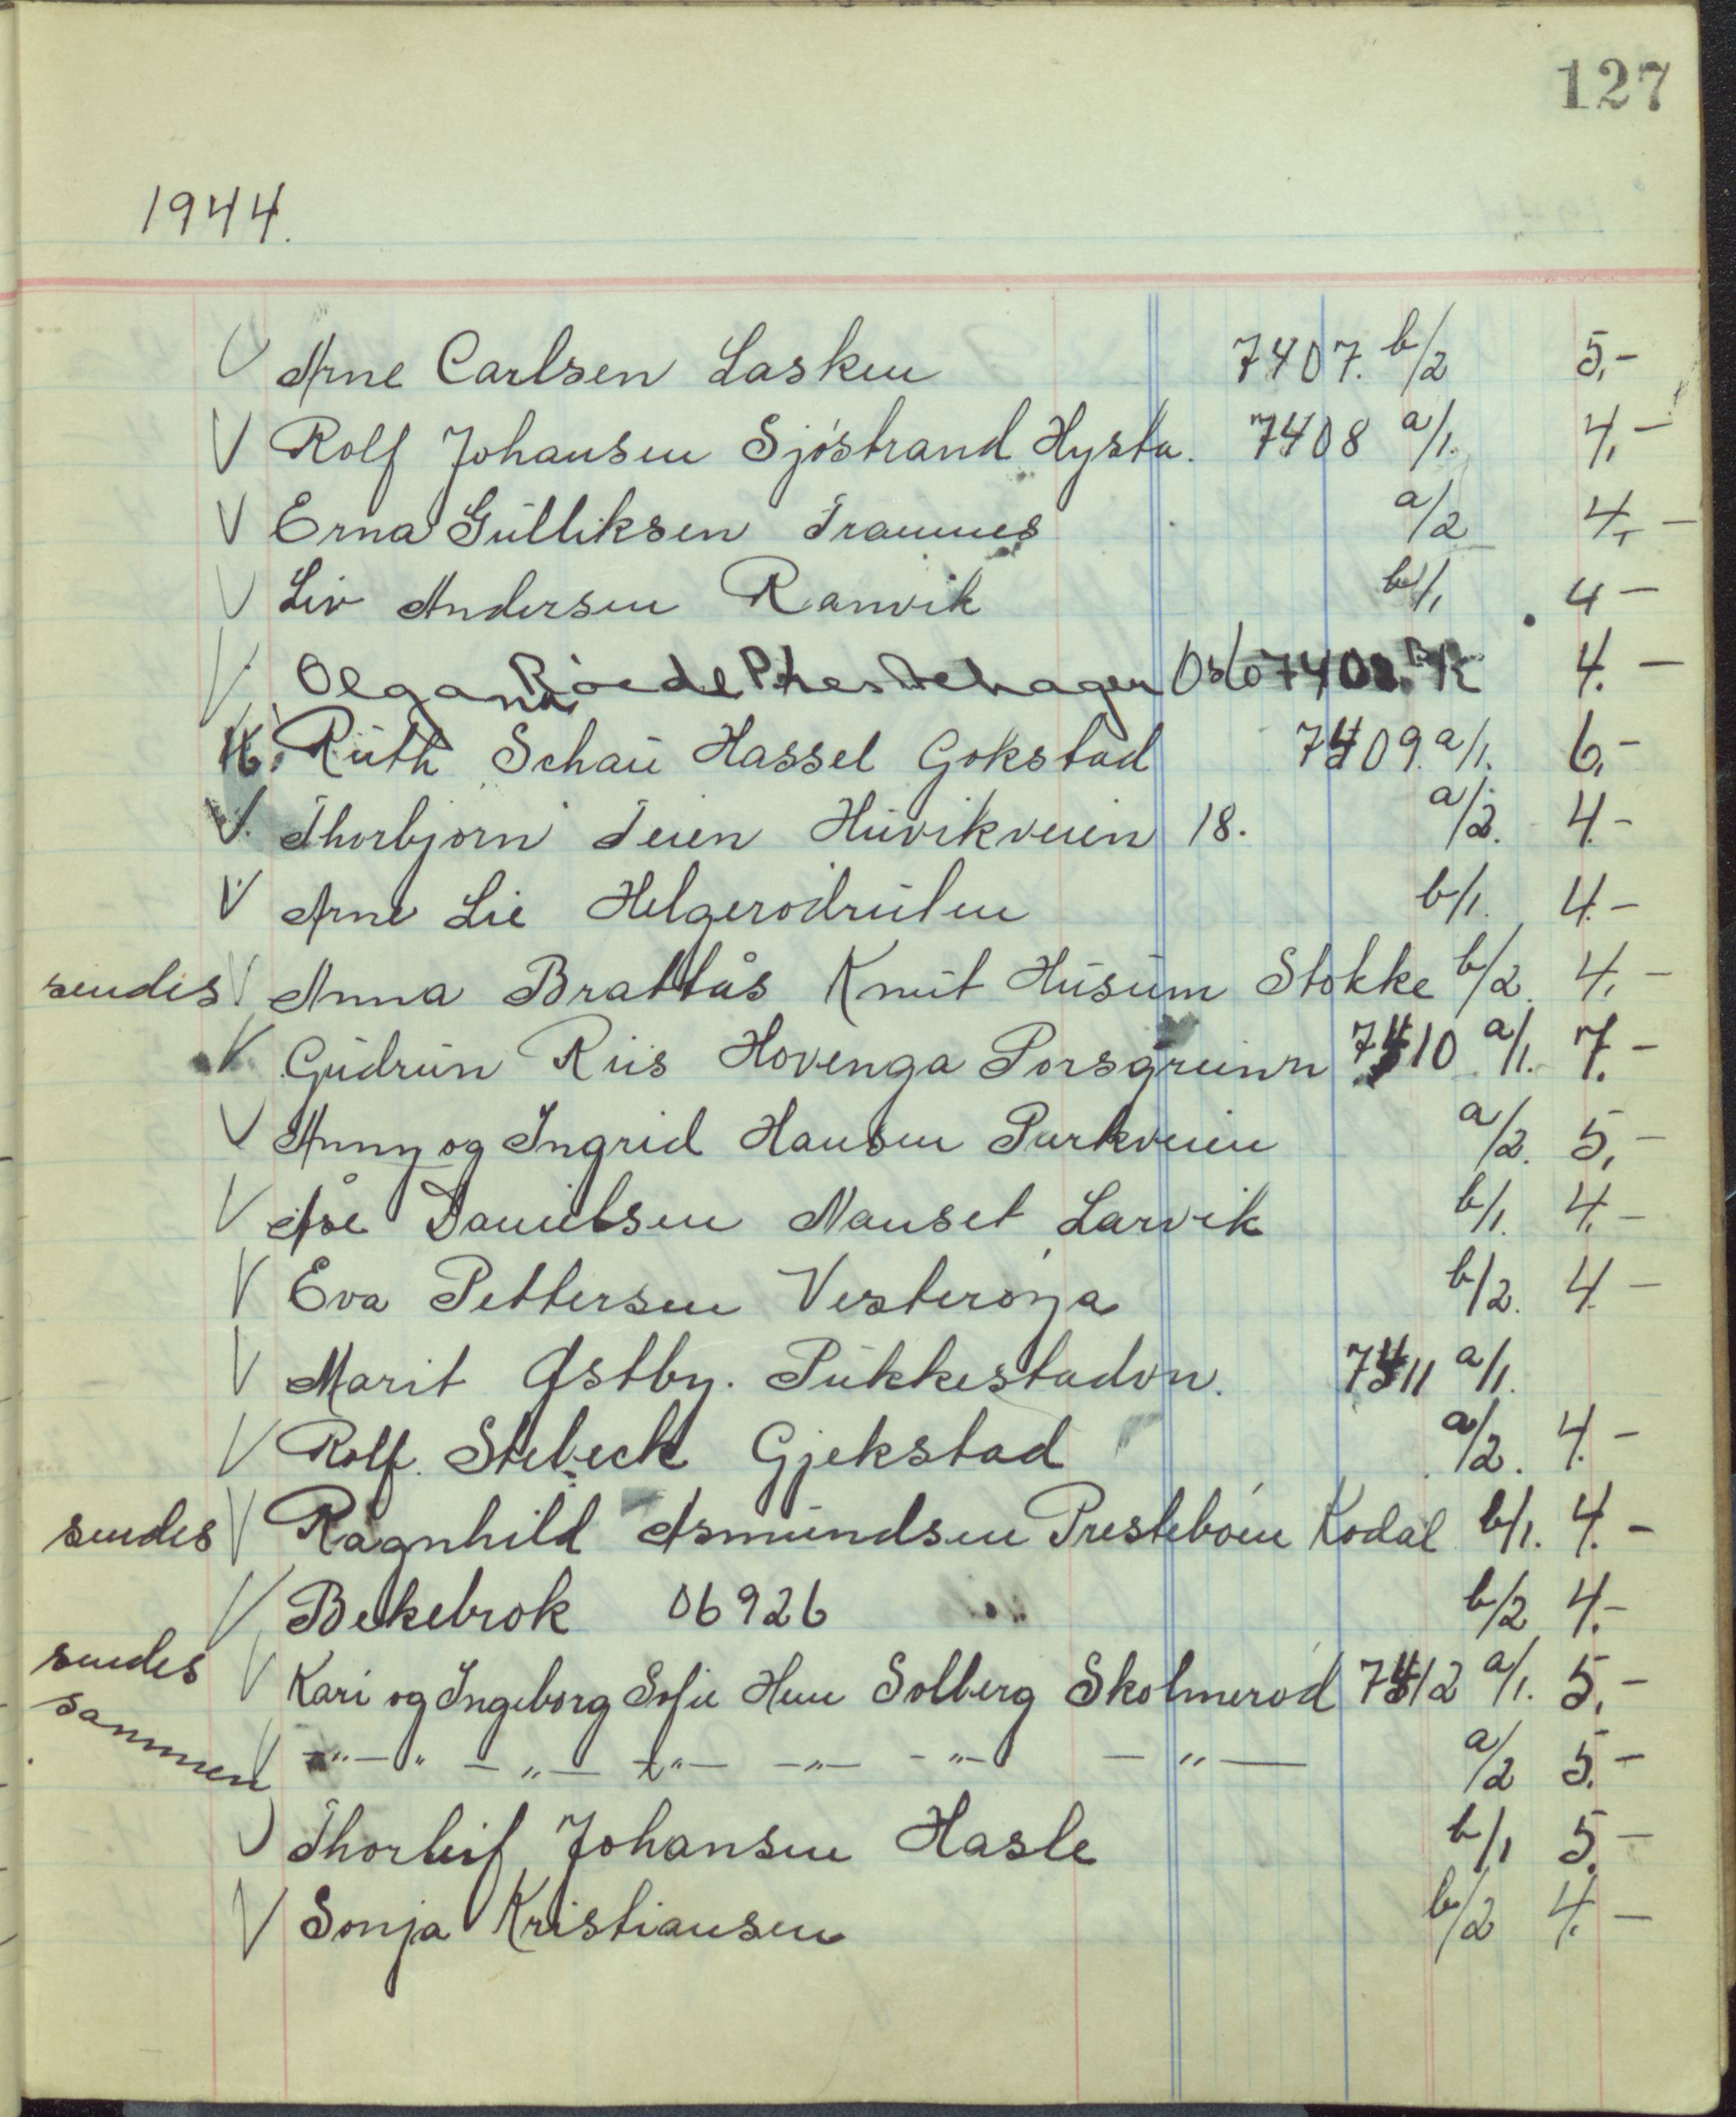 127
1944.
V Arne Carlsen Lasken 7407. b/2 5,-
V Rolf Johansen Sjöstrand Hysta. 7408 a/1. 4,-
V Erna Gulliksen Framnes a/2 4,-
V Liv Andersen Ranvik b/1 4-
V Olga Oslo 7408. 4.-
Ruth Schau Hassel Gokstad 7409. a/1. 6,-
V Thorbjörn Teien Huvikveien 18. a/2. 4.-
V Arne Lie Helgerödrulen b/1. 4.-
sendes V Anna Brattås Knut Husum Stokke b/2. 4,-
V Gudrun Riis Hovenga Porsgrunn 7410 a/1. 7.-
V Anny og Ingrid Hansen Parkveien a/2. 5,-
V Åse Danielsen Nanset Larvik b/1. 4,-
V Eva Pettersen Vesteröya b/2. 4.-
V Marit Østby. Pukkestadvn. 7411 a/1.
V Rolf. Stebeck Gjekstad a/2. 4.-
sendes V Ragnhild Asmundsen Presteböen Kodal b/1. 4.-
V Bekebrok 06926 b/2 4.-
sendes V Kari og Ingeborg Sofie Hem Solberg Skolmeröd 7412 a/1. 5,-
sammen V -"- " -"- -"- -"- -"- -"- a/2 5.-
V Thorleif Johansen Hasle b/1 5.-
V Sonja Kristiansen b/2 4.-